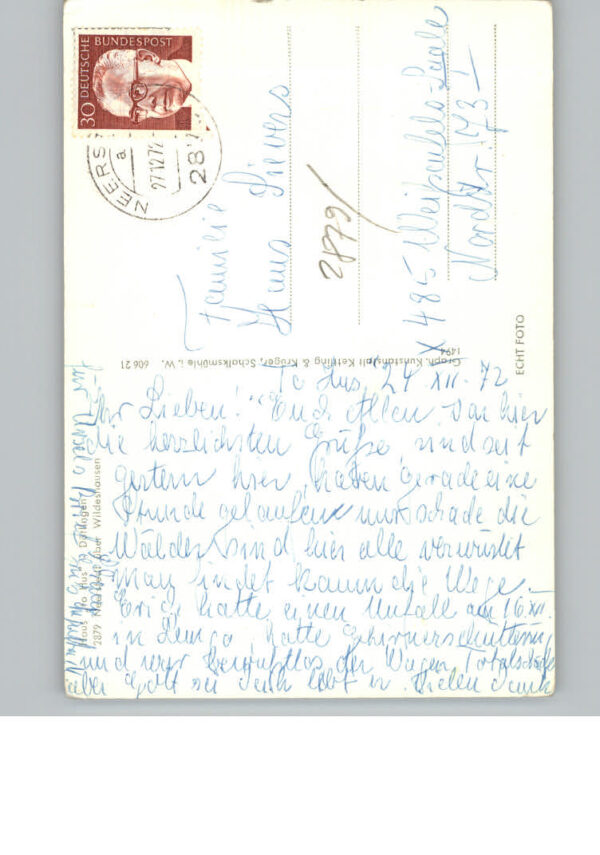 30 DEUTSCHE BUNDESPOST
NEERS
a
27.12.72
287
Familie
Hans Sievers
2879
X 485 Weißenfels-Saale
Nordstr. 173 I
ECHT FOTO
Graph. Kunstanstalt Kettling & Krüger, Schalksmühle i. W. 606 21
1494
To Hus, 27 XII. 72
Ihr Lieben! Euch Allen von hier
die herzlichsten Grüße, sind seit
gestern hier, haben gerade eine
Stunde gelaufen nur schade die
Wälder sind hier alle verwüstet
man findet kaum die Wege.
Erich hatte einen Unfall am 16 XII.
in Lemgo hatte Gehirnerschütterung
und war bewußtlos der Wagen Totalschade
aber Gott sei Dank lebt er. Vielen Dank
für
Haus „To Hus" Dötlingen
2879 über Wildeshausen